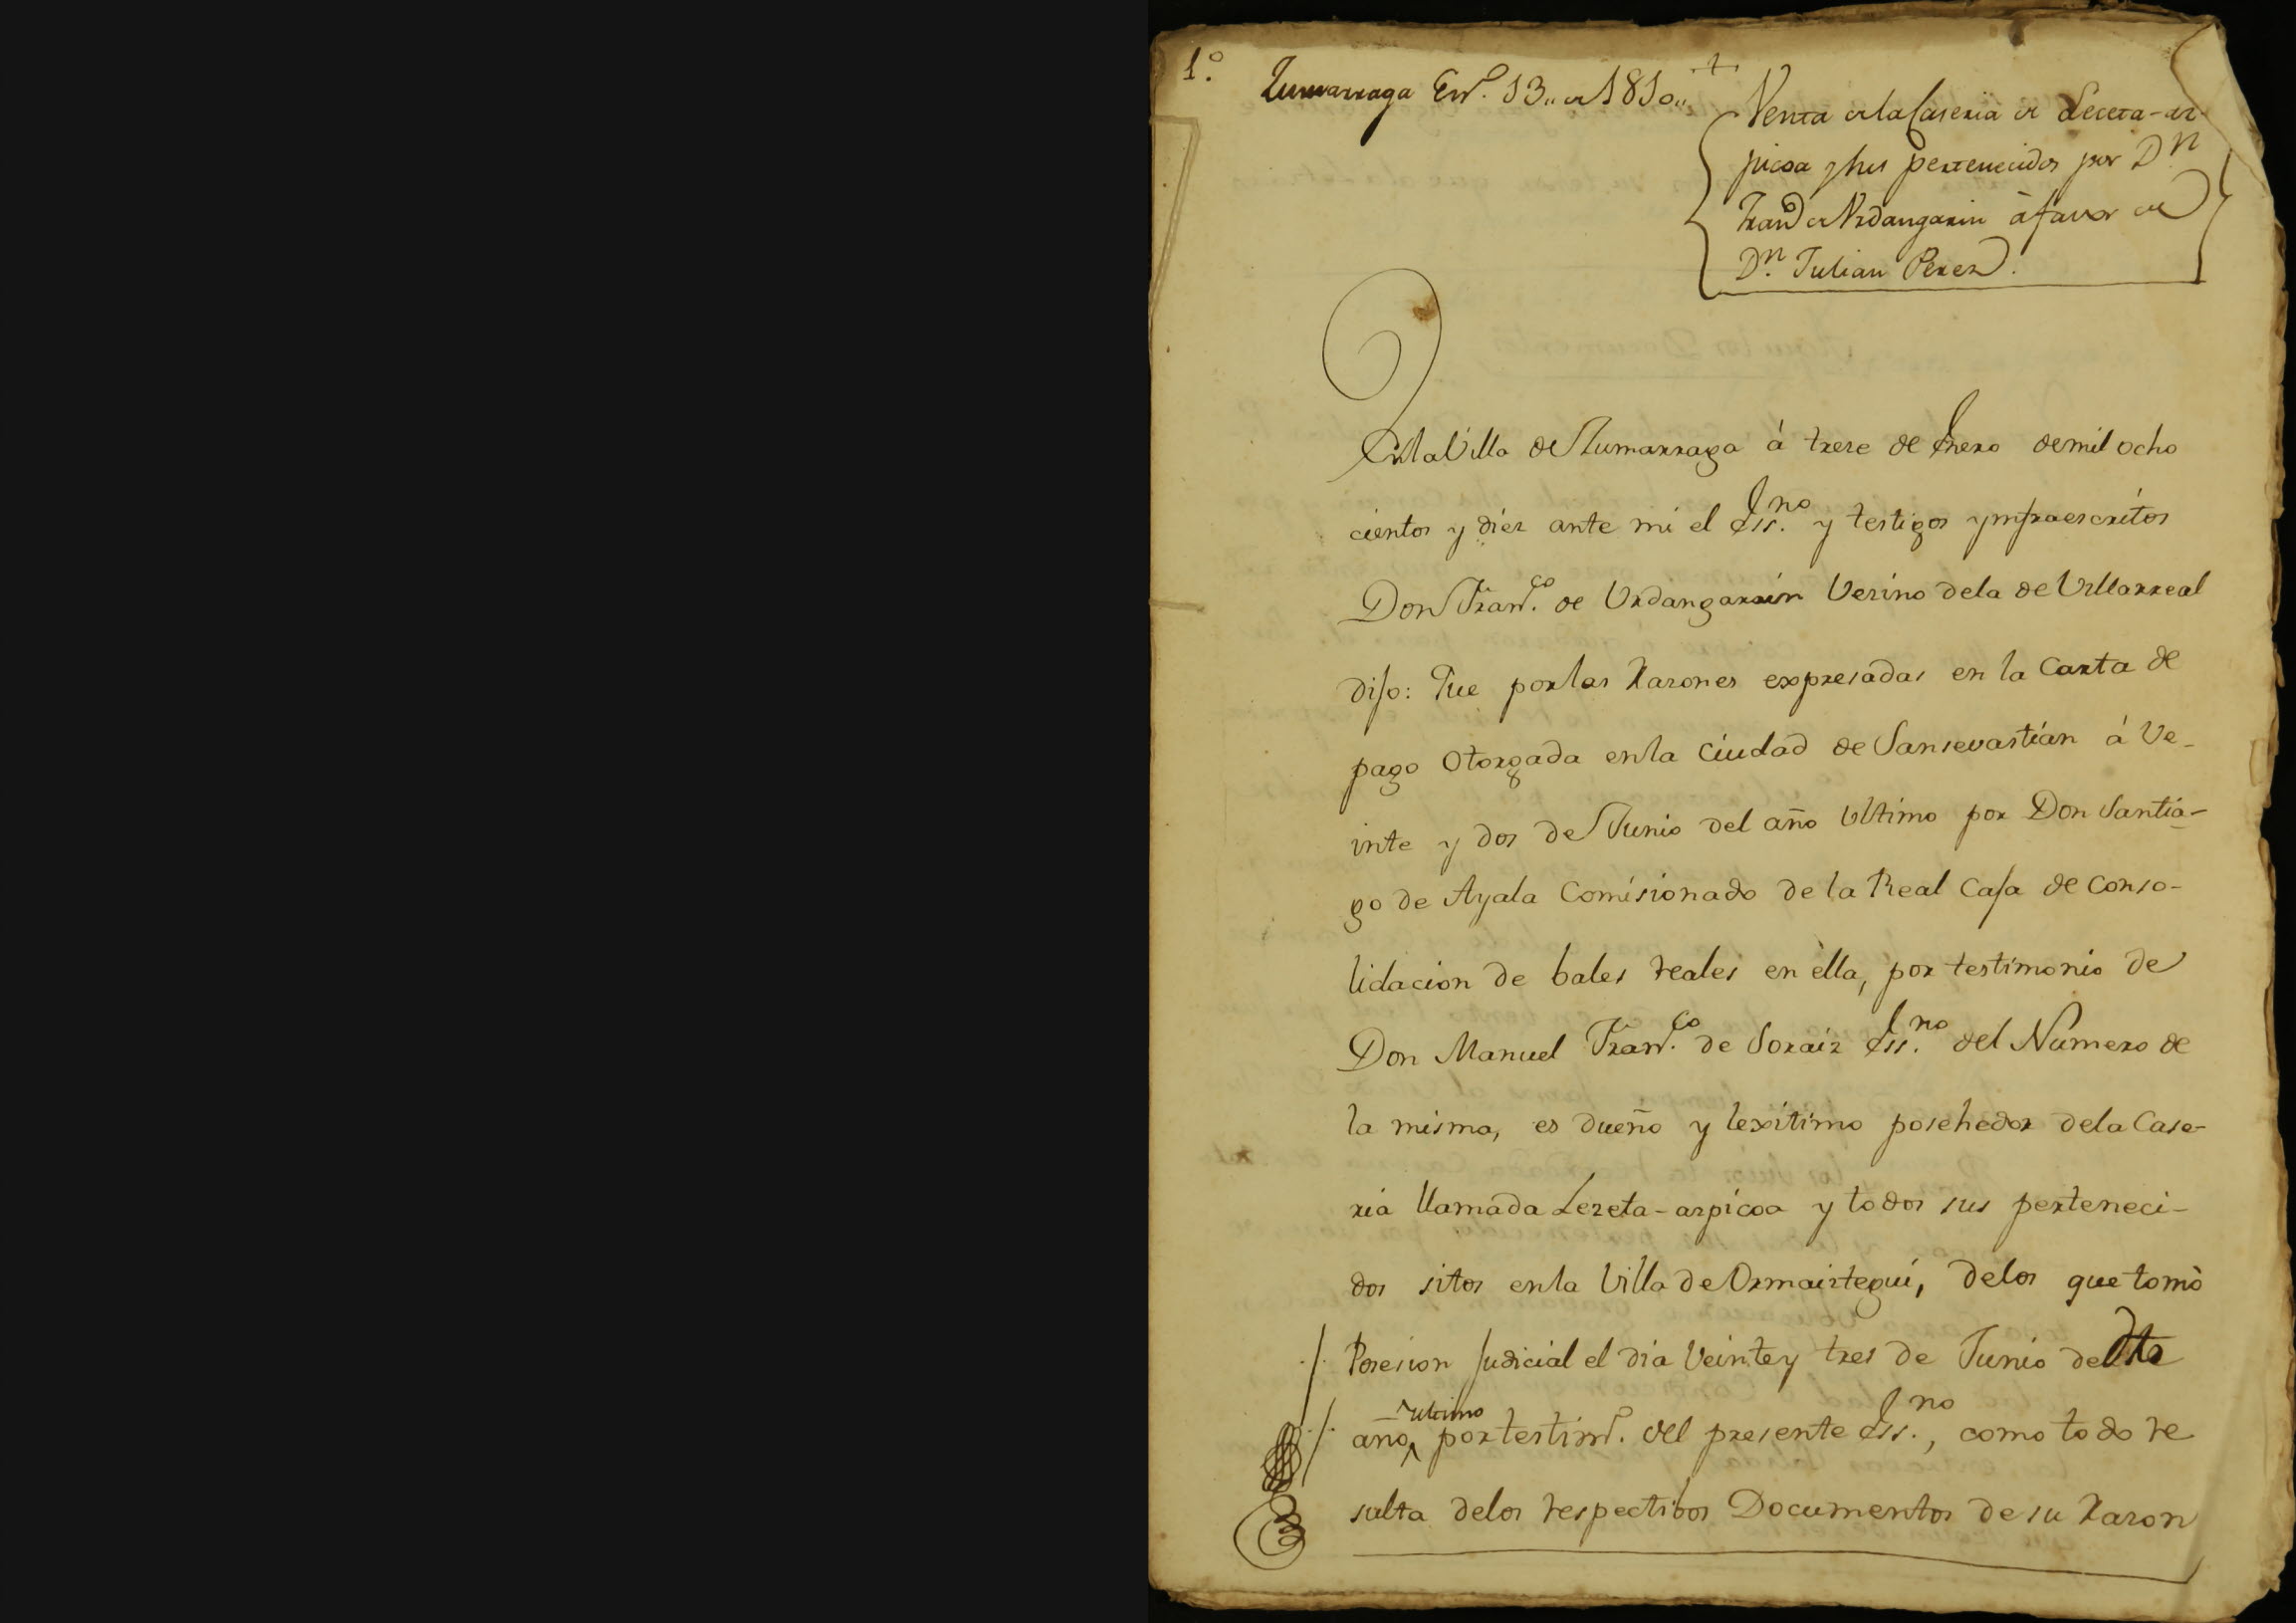 1.º
Zumarraga En.º 13,, de 1810,,
Venta de la Caseria de Leceta-az-
picoa y sus pertenecidos por D.n
Fran.co de Urdangarin à favor de
D.n Julian Perez.
En la Villa de Zumarraga á treze de Enero de mil ocho
cientos y diez ante mi el Ess.no y testigos ynfraescritos
Don Fran.co de Urdangarin Vezino de la de Villarreal
dijo: Que por las Razones expresadas en la Carta de
pago Otorgada en la Ciudad de Sansevastián á Ve-
inte y dos de Junio del año Ultimo por Don Santia-
go de Ayala Comisionado de la Real Caja de Conso-
lidacion de bales reales en èlla, por testimonio de
Don Manuel Fran.co de Soraiz Ess.no del Numero de
la misma, es dueño y lexitimo posehedor de la Case-
ria llamada Lezeta-azpicoa y todos sus perteneci-
dos sitos en la Villa de Ormaiztegui, de los que tomò
Posesion Judicial el dia Veinte y tres de Junio del dto
año ultimo por testim.º del presente Ess.no, como todo re
sulta de los respectibos Documentos de su Razon